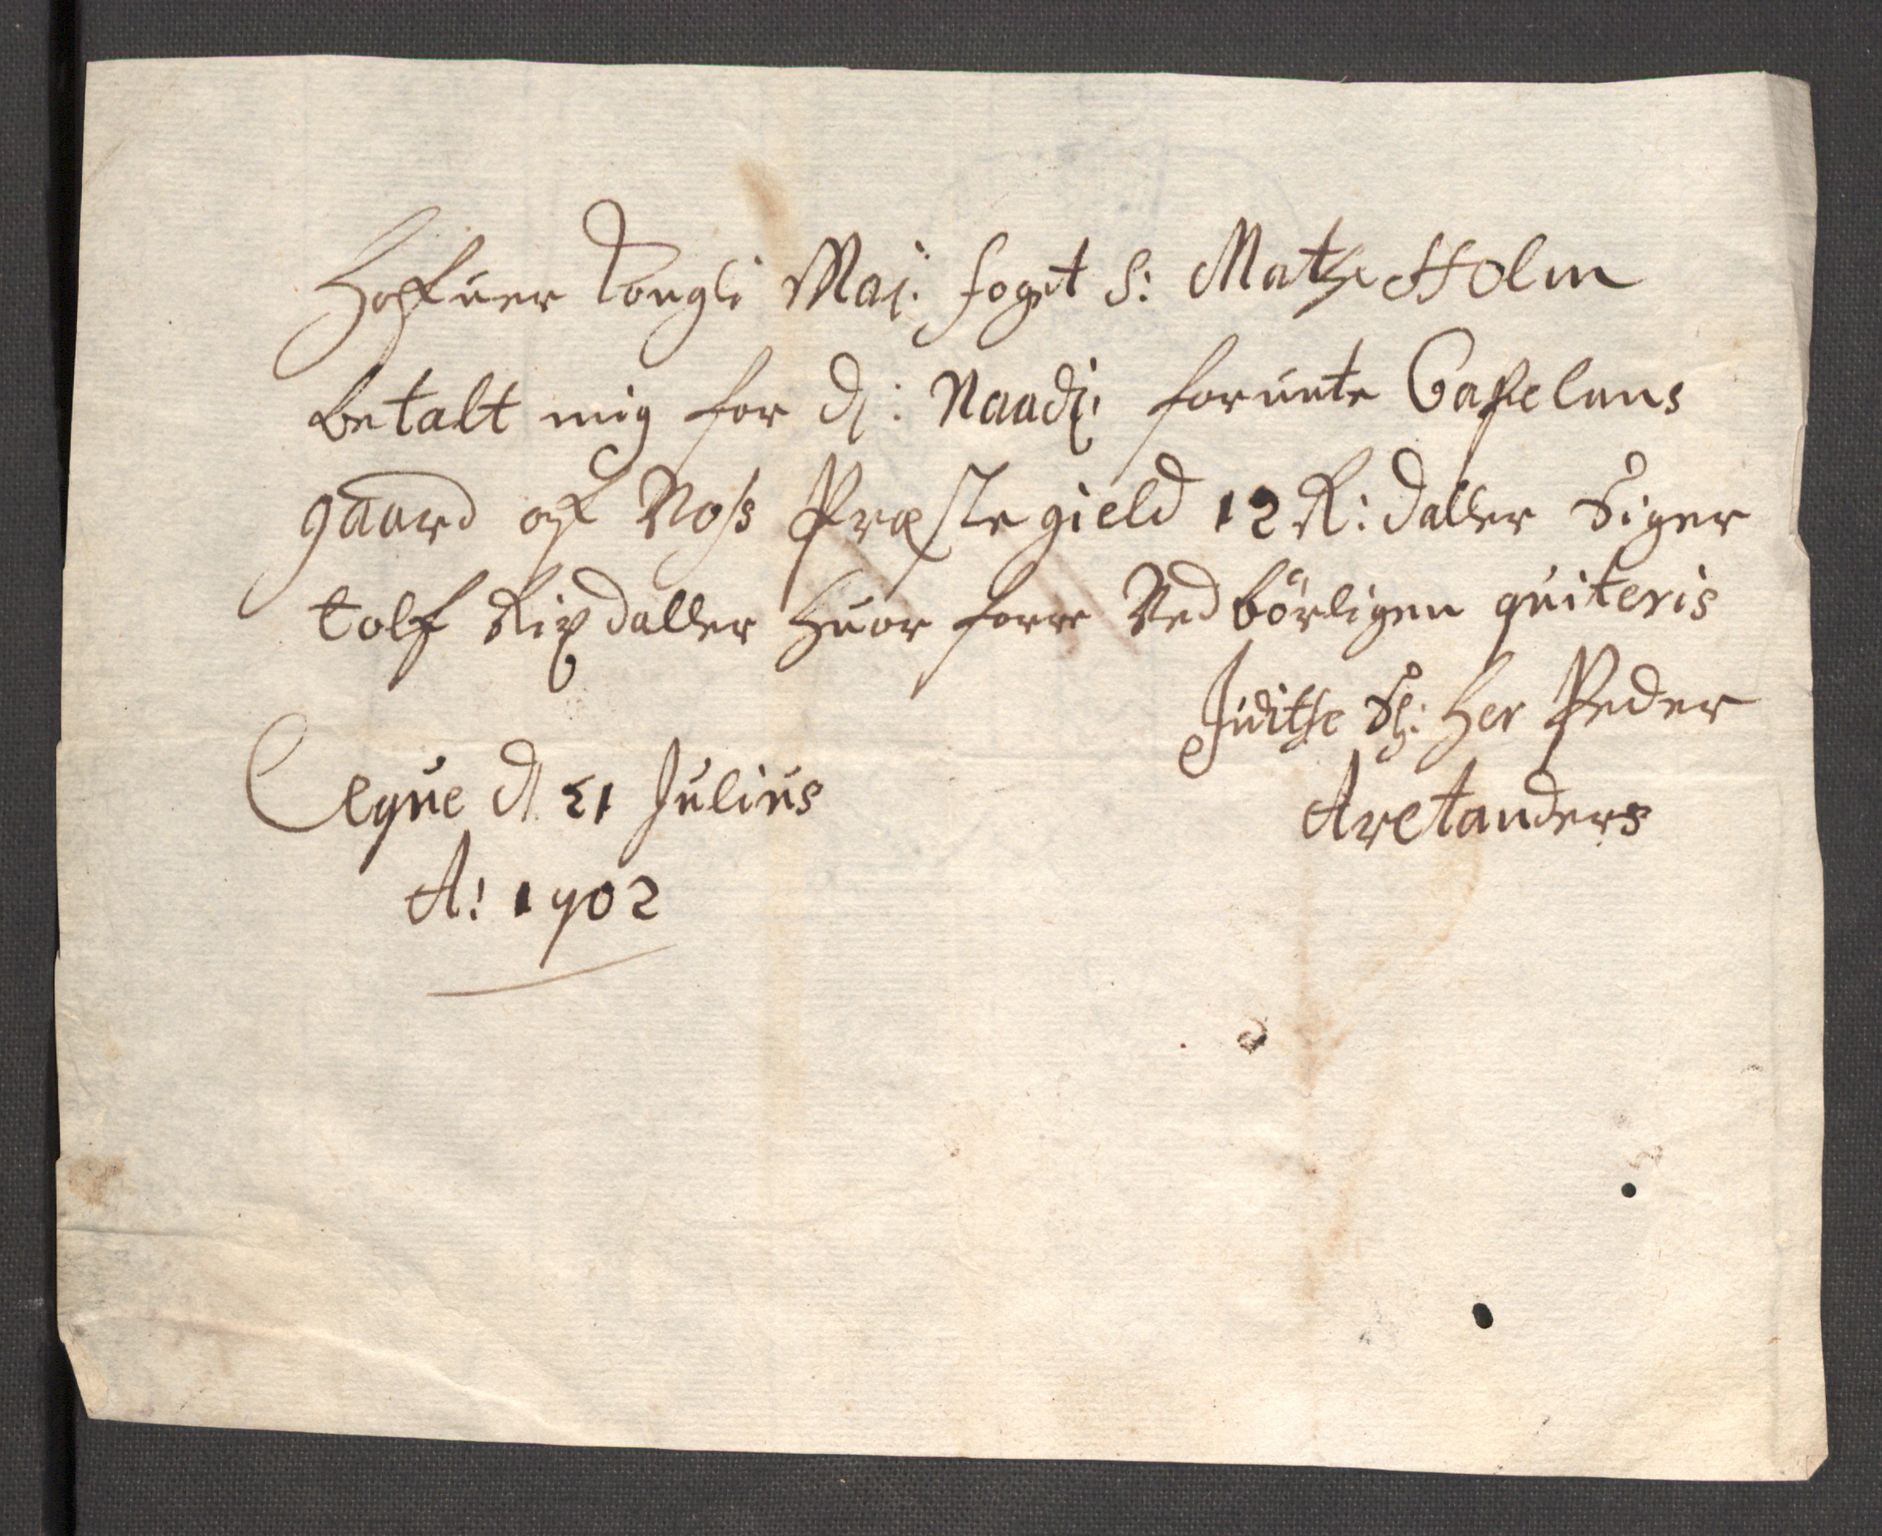 Hafuer Kongli Maj: foget S: Matz Holm
betalt mig for dj: Naadz: forunte Capelans
gaard af Woss Præstegield 12 R: daller Siger
tolf Rixdaller huor forre Ved börligen quiteris
Juditse Sl: Her Peder
Aretanders
Eque d 21 Julius
A: 1702